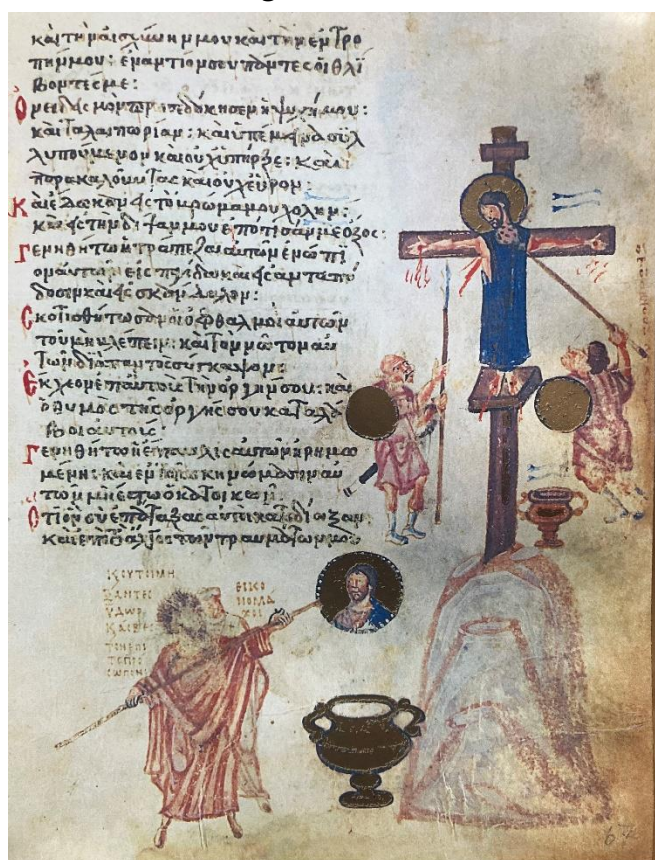 καὶ τὴν αἰσχύνην μου καὶ τὴν ἐντρο
πήν μου: ἐναντίον σου πάντες οἱ θλί
βοντές με:
Ὀνειδισμὸν προσεδόκησεν ἡ ψυχή μου:
καὶ ταλαιπωρίαν: καὶ ὑπέμεινα συλ
λυπούμενον καὶ οὐχ ὑπῆρξε: καὶ
παρακαλοῦντας καὶ οὐχ εὗρον:
Καὶ ἔδωκαν εἰς τὸ βρῶμά μου χολήν:
καὶ εἰς τὴν δίψαν μου ἐπότισάν με ὄξος:
Γενηθήτω ἡ τράπεζα αὐτῶν ἐνώπι
ον αὐτῶν εἰς παγίδα καὶ εἰς ἀνταπό
δοσιν καὶ εἰς σκάνδαλον:
Σκοτισθήτωσαν οἱ ὀφθαλμοὶ αὐτῶν
τοῦ μὴ βλέπειν: καὶ τὸν νῶτον αὐ
τῶν διὰ παντὸς σύγκαμψον:
Ἔκχεον ἐπ αὐτοὺς τὴν ὀργήν σου: καὶ
ὁ θυμὸς τῆς ὀργῆς σου καταλά
βοι αὐτούς:
Γενηθήτω ἡ ἔπαυλις αὐτῶν ἠρημω
μένη: καὶ ἐν τοῖς σκηνώμασιν αὐ
τῶν μὴ ἔστω ὁ κατοικῶν:
Ὅτι ὃν σὺ ἐπάταξας αὐτοὶ κατεδίωξαν
καὶ ἐπὶ τὸ ἄλγος τῶν τραυμάτων μου
Κ ΟΥΤΟΙ ΜΗ
ΞΑΝΤΕΣ
ΥΔΩΡ
ΚΑΙ
ΤΟΝ ΕΠΙ
ΤΟ ΠΡΟ
ΣΩΠΟΝ
ΕΙΚΟ
ΝΟΜΑ
ΧΟΙ